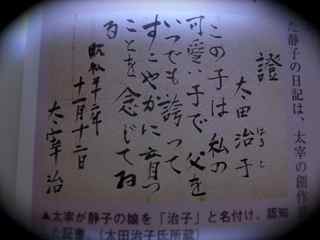 た静子の日記は、太宰の創作
證
太田治子
はるこ
この子は私の
可愛い子で父を
いつでも誇つて
すこやかに育つ
ことを念じてゐ
る
昭和十六年
十一月十二日
太宰治
▲太宰が静子の娘を「治子」と名付け、認知
た証書。(太田治子氏所蔵)